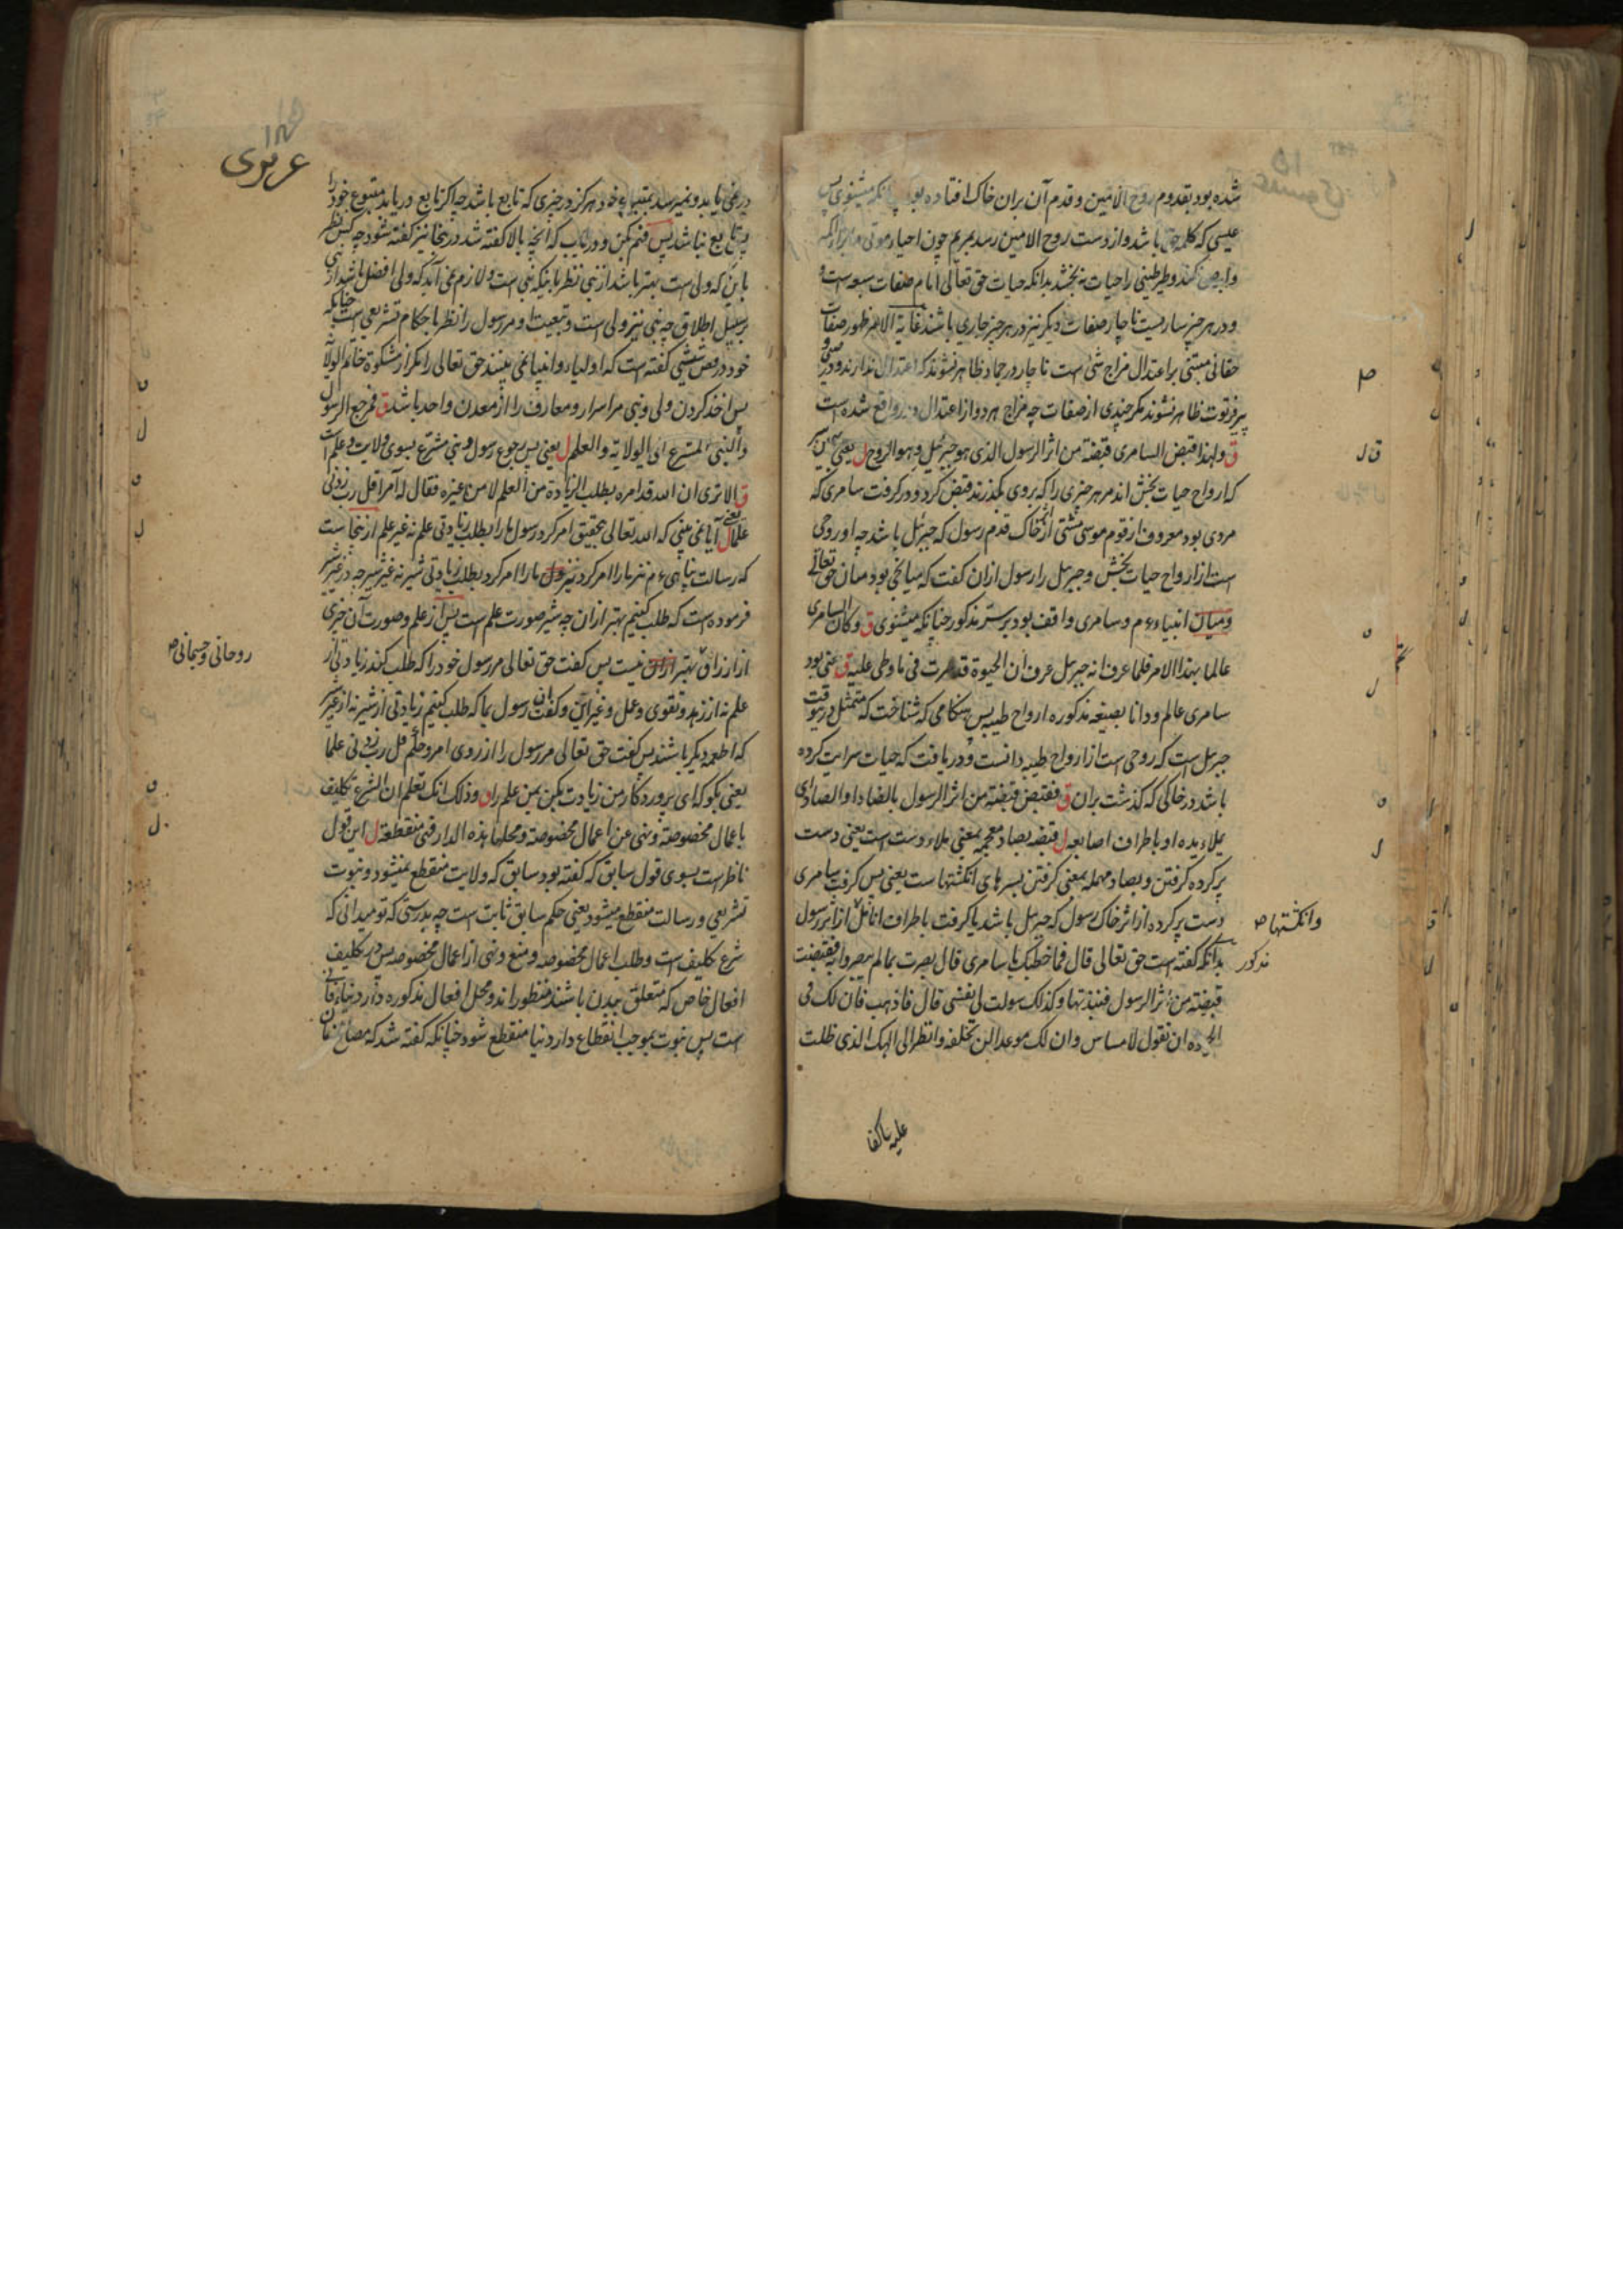 شده بود بقدوم روح الامین و قدم آن بران خاک افتاده بود چنانکه میشنوی پس
عیسی که کلمه حق باشد و از دست روح الامین رسد بمریم چون احیاء موتی
وابرص کند و طیر طینی را حیات نه بخشد بدانکه حیات حق تعالی امام صفات سبعه است و
و در هر چیز ساریست ناچار صفات دیگر نیز در هر چیز جاری باشند غایة الامر ظهور صفات
حقانی مبتنی بر اعتدال مزاج شئ است ناچار در جماد ظاهر نشوند که اعتدال ندارند و در صبی و
پیر فرتوت ظاهر نشوند مگر چندی از صفات چه مزاج هر دو از اعتدال واقع شده است
ق ولهذا قبض السامری قبضة من اثر الرسول الذی هو جبرئیل وهو الروح ل یعنی
که ارواح حیات بخش اند مر هر چیزی را که بر وی بگذرند قبض کرد و در گرفت سامری که
مردی بود معروف از قوم موسی مشتی از خاک قدم رسول که جبرئل باشد چه او روحی
است از ارواح حیات بخش و جبرئل را رسول ازان گفت که میانجی بود میان حق تعالی
و میان انبیاء ءم و سامری واقف بود بر سر مذکور چنانکه میشنوی ق وکان السامری
عالما بهذا الامر فلما عرف انه جبرئل عرف ان الحیوة قد سرت فی ما وطی علیه ق یعنی بود
سامری عالم و دانا بصیغه مذکوره ارواح طیبه پس هنگامی که شناخت که متمثل درینوقت
جبرئل است که روحی است از ارواح طیبه دانست و دریافت که حیات سرایت کرده
باشد در خاکی که گذشت بران ق فقبض قبضة من اثر الرسول بالضاد او الصاد ای
بملاء یده او باطراف اصابعه ل قبضه بضاد معجمه بمعنی ملاء دست است یعنی دست
پر کرده گرفتن و بصاد مهمله بمعنی گرفتن بسرهای انگشتهاست یعنی پس گرفت سامری
دست پر کرده از اثر خاک رسول که جبرئل باشد یا گرفت باطراف انامل از اثر رسول
وانگشتها ص
مذکور
بدانکه گفته است حق تعالی قال فما خطبک یا سامری قال بصرت بمالم یبصروا به فقبضت
قبضة من اثر الرسول فنبذتها وکذلک سولت لی نفسی قال فاذهب فان لک فی
الحیوة ان تقول لامساس وان لک موعدا لن تخلفه وانظر الی الهک الذی ظلت
علیه عاکفا
عزیری
در نمی یابد و نمیرسد بمتبوع خود هرگز در چیزی که تابع باشد چه اگر تابع دریابد متبوع خود را
پس تابع نباشد پس فهم کن و دریاب که آنچه بالا گفته شد درینجا نیز گفته شود چه کس نظر
باین که ولی است بهتر باشد از نبی نظر باینکه نبی است و لازم نمی آید که ولی افضل باشد از نبی
بر سبیل اطلاق چه نبی نیز ولی است و تبعیت و مر رسول را نظر باحکام تشریعی است چنانکه
خود در فص شیثی گفته است که اولیاء و انبیا نمی بینند حق تعالی را مگر از مشکوة خاتم الولایة
پس اخذ کردن ولی و نبی مر اسرار و معارف را از معدن واحد باشد ق فمرجع الرسول
والنبی المشرع الی الولایة والعلم ل یعنی پس رجوع رسول و نبی مشرع بسوی ولایت و علم است
ق الا تری ان الله قد امره بطلب الزیادة من العلم لا من غیره فقال له آمرا قل رب زدنی
علما ل یعنی آیا نمی بینی که الله تعالی بتحقیق امر کرد رسول ما را بطلب زیادتی علم نه غیر علم ازینجاست
که رسالت پناهی ءم نیز ما را امر کرد بطلب زیادتی شیر نه غیر شیر چه در غیر شیر
فرموده است که طلب کنیم بهتر ازان چه شیر صورت علم است پس از علم و صورت آن چیزی
از ارزاق بهتر ازان نیست پس گفت حق تعالی مر رسول خود را که طلب کند زیادتی از
روحانی و جسمانی ص
علم نه از زهد و تقوی و عمل و غیر این و گفت آن رسول ما که طلب کنیم زیادتی از شیر نه از غیر شیر
که اطعمه دیگر باشند پس گفت حق تعالی مر رسول را از روی امر و حکم قل رب زدنی علما
یعنی بگو که ای پروردگار من زیادت بکن بمن علم را ق وذلک انک تعلم ان الشرع تکلیف
باعمال مخصوصة ونهی عن اعمال مخصوصة ومحلها هذه الدار فهی منقطعة ل این قول
ناظر است بسوی قول سابق که گفته بود سابق که ولایت منقطع نمیشود و نبوت
تشریعی و رسالت منقطع میشود یعنی حکم سابق ثابت است چه بدرستی که تو میدانی که
شرع تکلیف است و طلب اعمال مخصوصه و منع و نهی از اعمال مخصوصه پس در تکلیف
افعال خاص که متعلق ببدن باشند منظور اند و محل افعال مذکوره دار دنیاء فانی
است پس نبوت بموجب انقطاع دار دنیا منقطع شود چنانکه گفته شد که مصالح